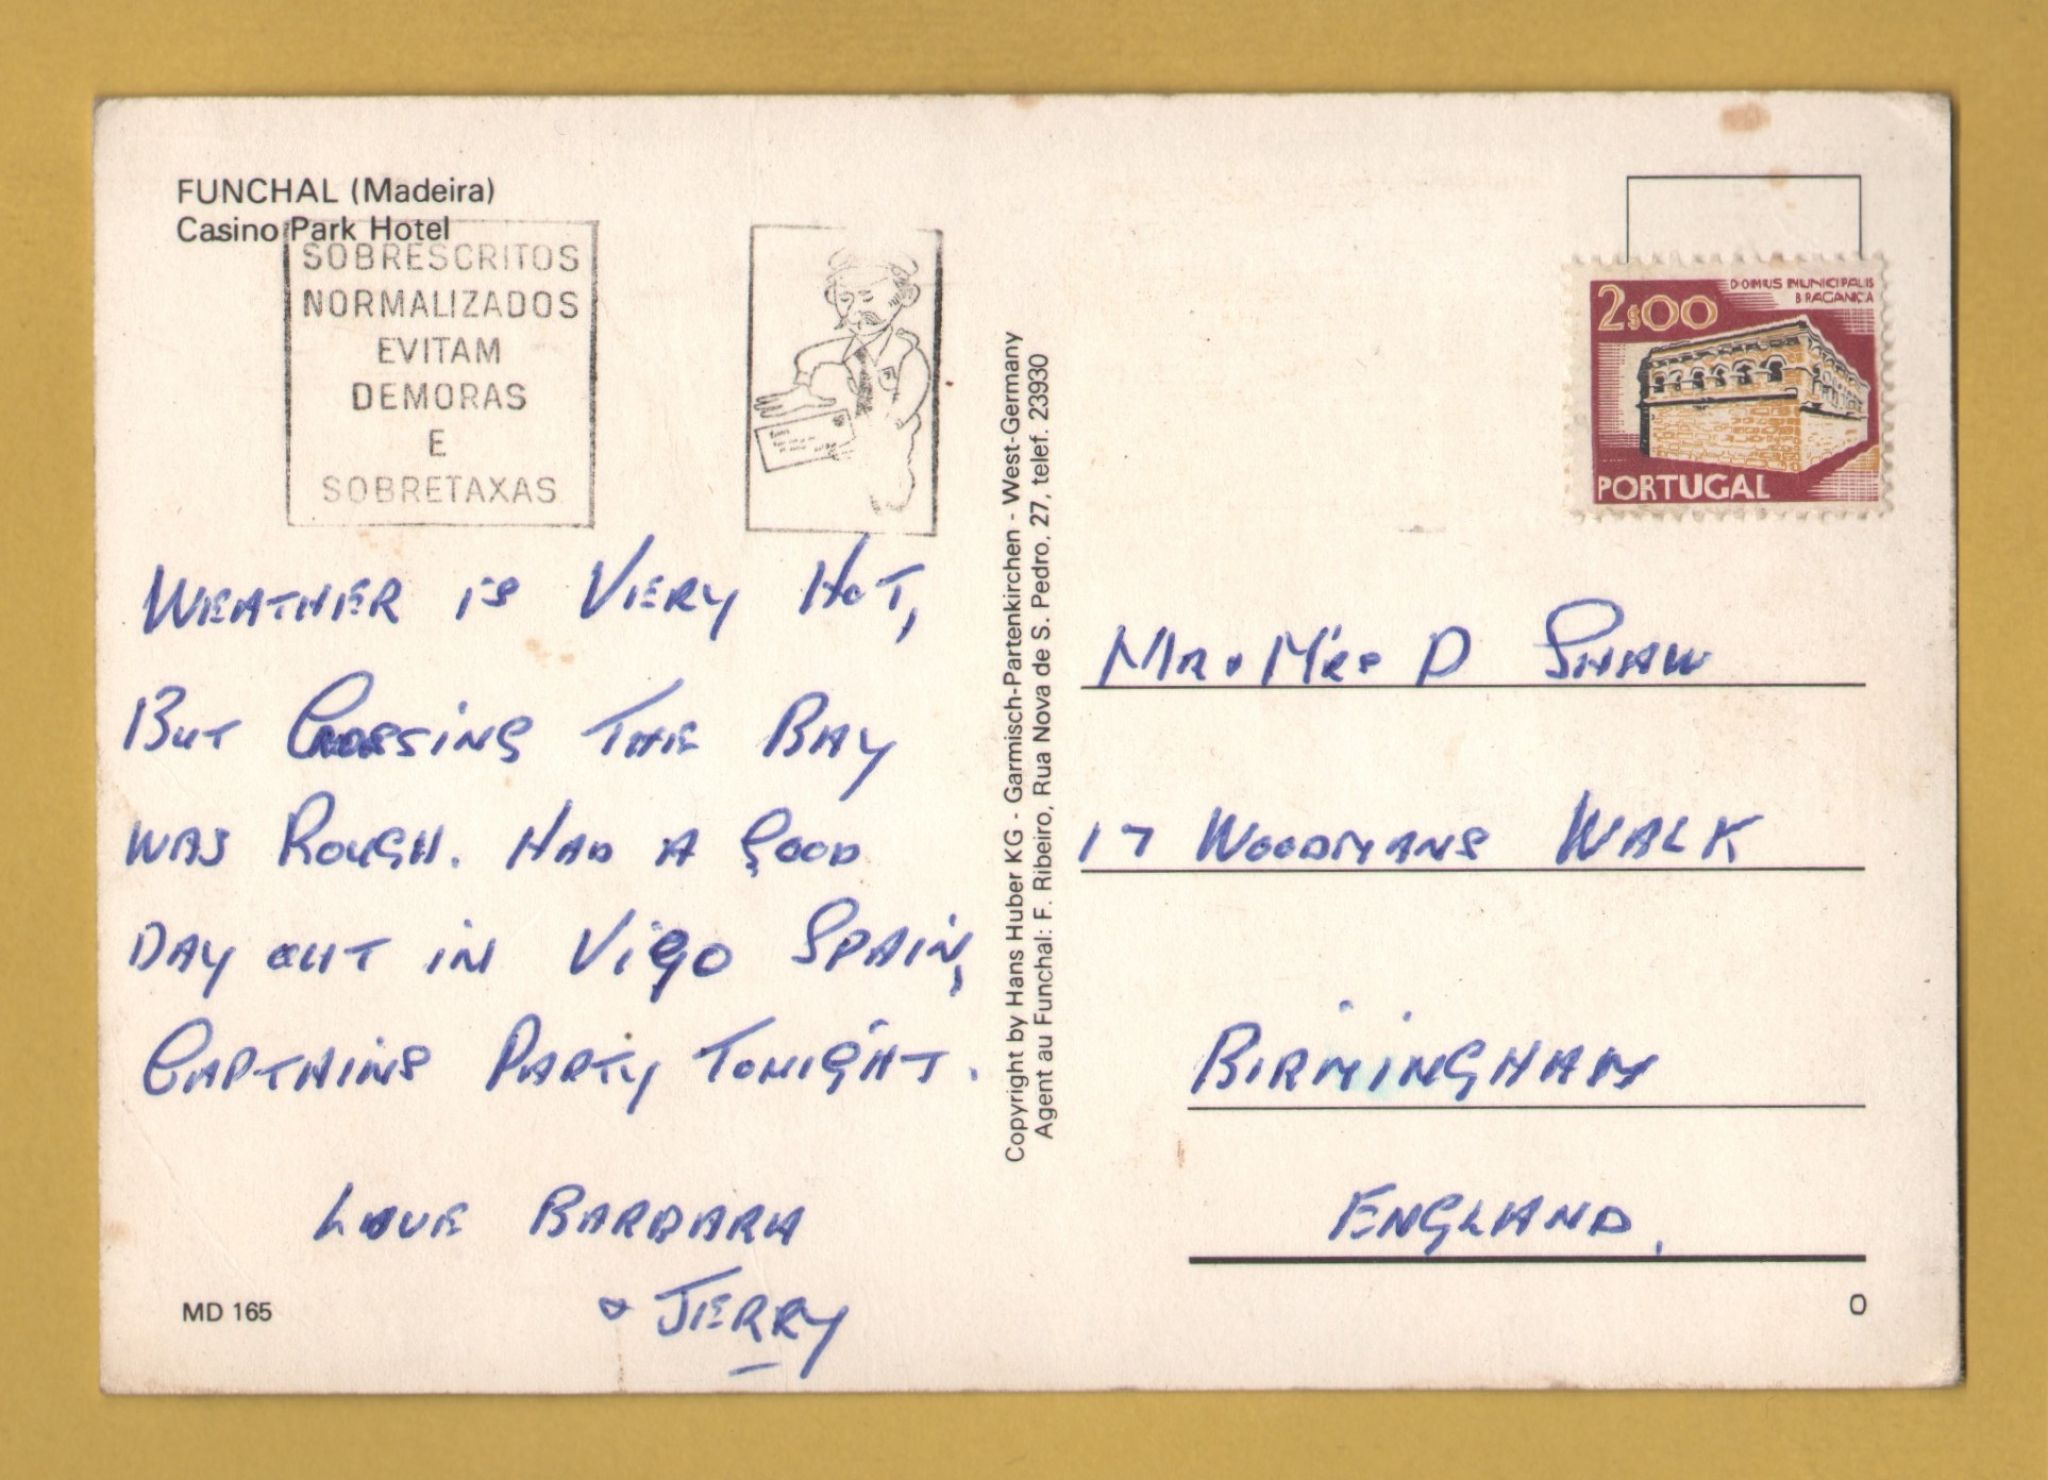 FUNCHAL (Madeira)
Casino Park Hotel
SOBRESCRITOS
NORMALIZADOS
EVITAM
DEMORAS
E
SOBRETAXAS
WEATHER IS VERY HOT,
BUT CROSSING THE BAY
WAS ROUGH. HAD A GOOD
DAY OUT IN VIGO SPAIN,
CAPTAINS PARTY TONIGHT.
LOVE BARBARA
& JERRY
MD 165
Copyright by Hans Huber KG - Garmisch-Partenkirchen - West-Germany
Agent au Funchal: F. Ribeiro, Rua Nova de S. Pedro, 27, telef. 23930
DOMUS MUNICIPALIS
BRAGANÇA
2$00
PORTUGAL
MR & MRS D SHAW
17 WOODMANS WALK
BIRMINGHAM
ENGLAND.
O